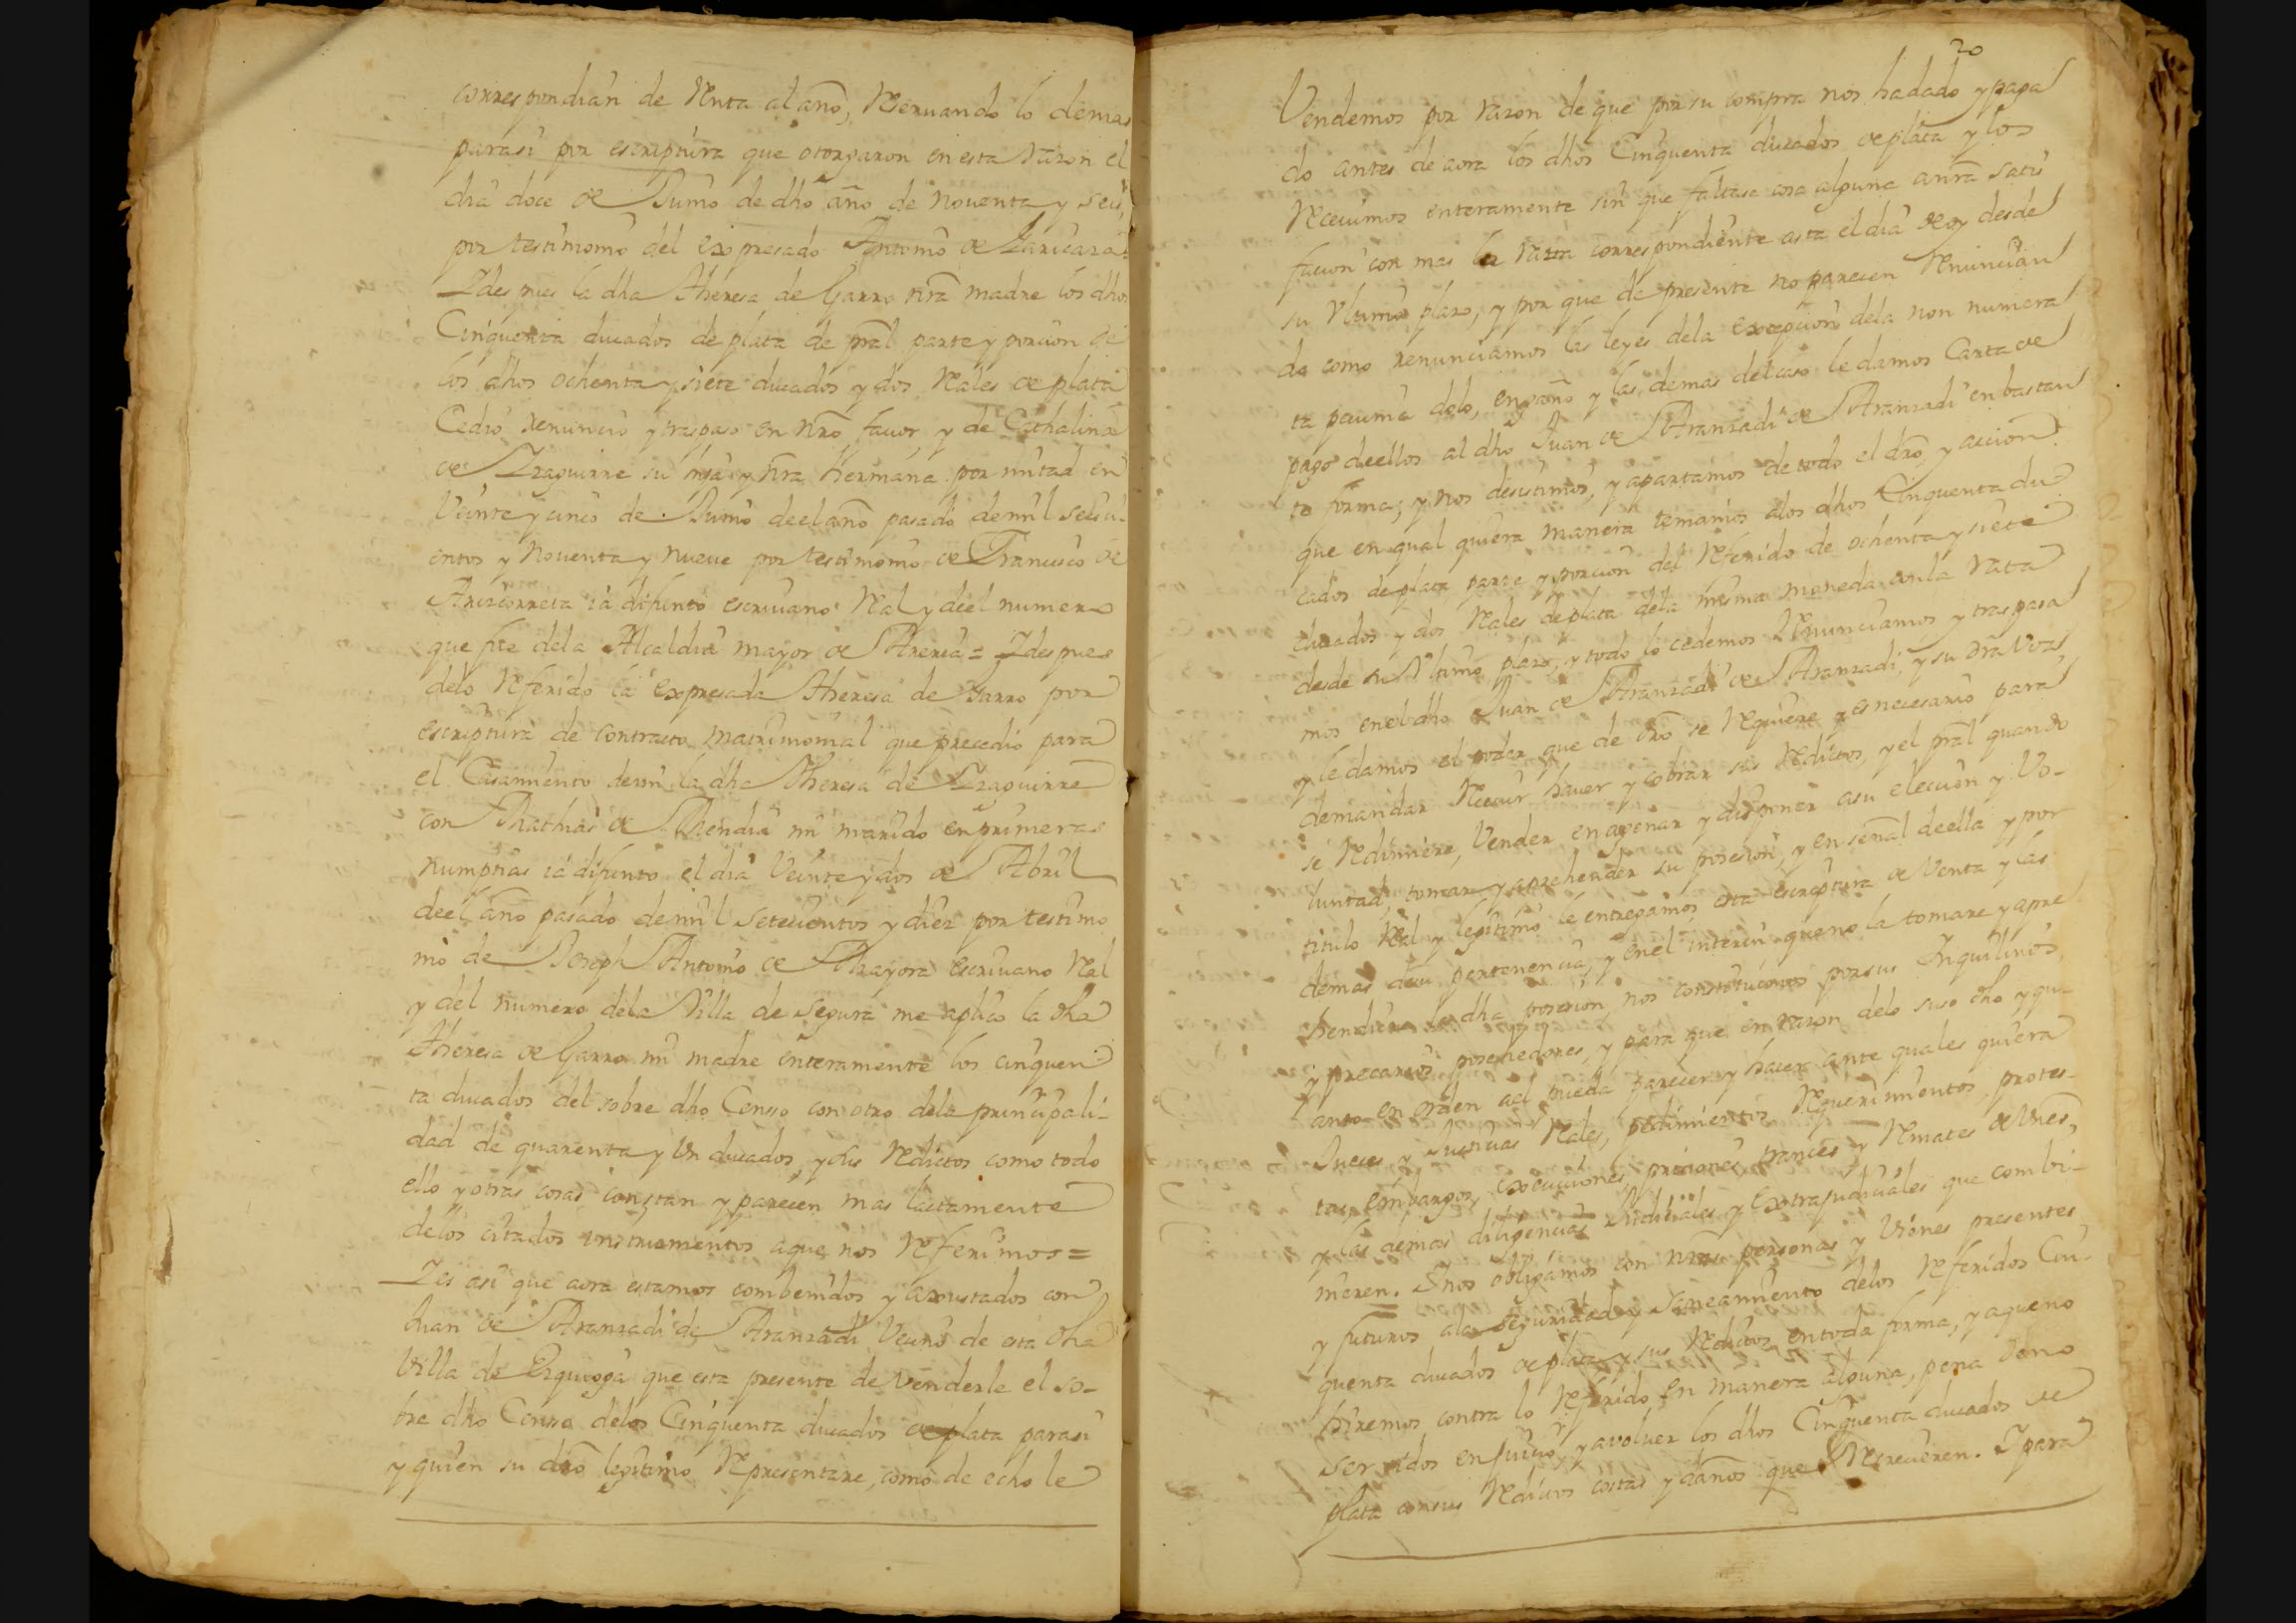 correspondian de Renta al año, Reseruando lo demas
parasi por escriptura que otorgaron en esta razon el
dia doce de Junio de dho año de Nouenta y seis,
por testimonio del expresado Antonio de
Y despues la dha Theresa de Garro nrã madre los dhos
Cinquenta ducados de plata de pral parte y porcion de
los dhos ochenta y siete ducados y dos Reales de plata
Cedio renuncio y traspaso en nrõ fauor y de Cathalina
de Yzaguirre su hija y nrã hermana por mitad en
Veinte y cinco de Junio deel año pasado de mil seisci-
entos y Nouenta y nueue por testimonio de Francisco de
Arizcorreta ia difunto escriuano Real y deel numero
que fue dela Alcaldia mayor de Areria = Y despues
delo Referido la expresada Theresa de Garro por
escriptura de contracto matrimonial que precedio para
el Casamiento demi la dha Theresa de Yzaguirre
con Mathias de Mendia mi marido en primeras
numptias ia difunto el dia Veinte y dos de Abril
deel año pasado de mil setecientos y diez por testimo
nio de Joseph Antonio de Mayora escriuano Real
y del numero dela Villa de Segura me aplico la dha
Theresa de Garro mi madre enteramente los cinquen
ta ducados del sobre dho Censo con otro dela principali-
dad de quarenta y Un ducados, y sus Reditos como todo
ello y otras cosas constan y parecen mas lactamente
delos citados instrumentos aque nos Referimos =
Y es asi que aora estamos combenidos y axustados con
Juan de Aranzadi de Aranzadi Vecino de esta dha
Villa de Ezquioga que esta presente de venderle el so-
bre dho Censo delos Cinquenta ducados de plata parasi
y quien su drõ legitimo Representare, como de echo le
20
Vendemos por razon de que por su compra nos hadado y paga
do antes de aora los dhos Cinquenta ducados de plata y los
Receuimos enteramente sin que faltase cosa alguna anrã satis
facion con mas la rata correspondiente asta el dia de oy desde
su Vltimo plazo, y por que de presente no parecen Renuncian
do como renunciamos las leyes dela excepcion dela non numera
ta pecunia dolo, engaño y las demas del caso le damos Carta de
pago deellos al dho Juan de Aranzadi de Aranzadi en bastan
te forma; y nos desistimos, y apartamos de todo el drõ y accion
que en qual quiera manera teniamos alos dhos Cinquenta du
cados de plata parte y porcion del Referido de ochenta y siete
ducados y dos Reales de plata dela misma moneda con la rata
desde su Vltimo plazo, y todo lo cedemos Renunciamos y traspasa
mos en el dho Juan de Aranzadi de Aranzadi, y su dra Voz
y le damos el poder que de drõ se Requiere y es necesario para
demandar Receuir hauer y cobrar sus Reditos, y el pral quando
se Redimiere, Vender enagenar y disponer asu eleccion y Vo-
luntad, tomar y aprehender su posesion, y en señal deella y por
titulo Real y legitimo le entregamos esta escriptura de Venta y las
demas desu pertenencia, y en el interin que no la tomare y apre
hendiere la dha posesion nos constituimos por sus Inquilinos
y precarios posehedores, y para que en razon delo suso dho y qu-
anto en orden ael pueda parecer y hacer ante quales quiera
Jueces y Justicias Reales, pedimientos, Requerimientos, protes-
tas, embargos, execuciones, prisiones, trances y Remates de Vienes,
y las demas diligencias Judiciales y extrajudiciales que combi-
nieren. Y nos obligamos con nras personas y Vienes presentes
y futuros ala seguridad y Saneamiento delos Referidos Cin
quenta ducados de plata y sus Reditos en toda forma, y aqueno
hiremos contra lo Referido en manera alguna, pena de no
ser oidos en Juicio, y avoluer los dhos Cinquenta ducados de
plata con sus Reditos costas y daños que Recrecieren. Y para